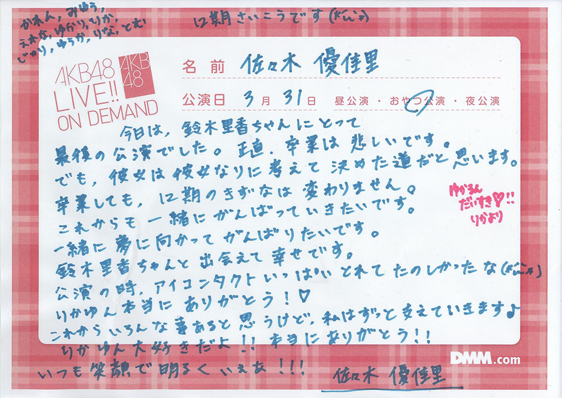 かれん, みゆう,
えれな, ゆかり, りか,
じゅり, ゆうか, りな, とむ
12期さいこうです
AKB48
LIVE!!
ON DEMAND
AKB
48
名前 佐々木 優佳里
公演日 3月31日 昼公演・おやつ公演・夜公演
今日は, 鈴木里香ちゃんにとって
最後の公演でした。正直, 卒業は悲しいです。
でも, 彼女は彼女なりに考えて決めた道だと思います。
卒業しても, 12期のきずなは変わりません。
これからも一緒にがんばっていきたいです。
一緒に夢に向かってがんばりたいです。
鈴木里香ちゃんと出会えて幸せです。
公演の時, アイコンタクトいっぱいとれてたのしかったな
りかゆん本当にありがとう!♡
これからいろんな事あると思うけど, 私はずっと支えていきます♪
りかゆん大好きだよ!! 本当にありがとう!!
いつも笑顔で明るくいよぉ!!!
佐々木 優佳里
ゆかるん
だいすき♡!!
りかより
DMM.com